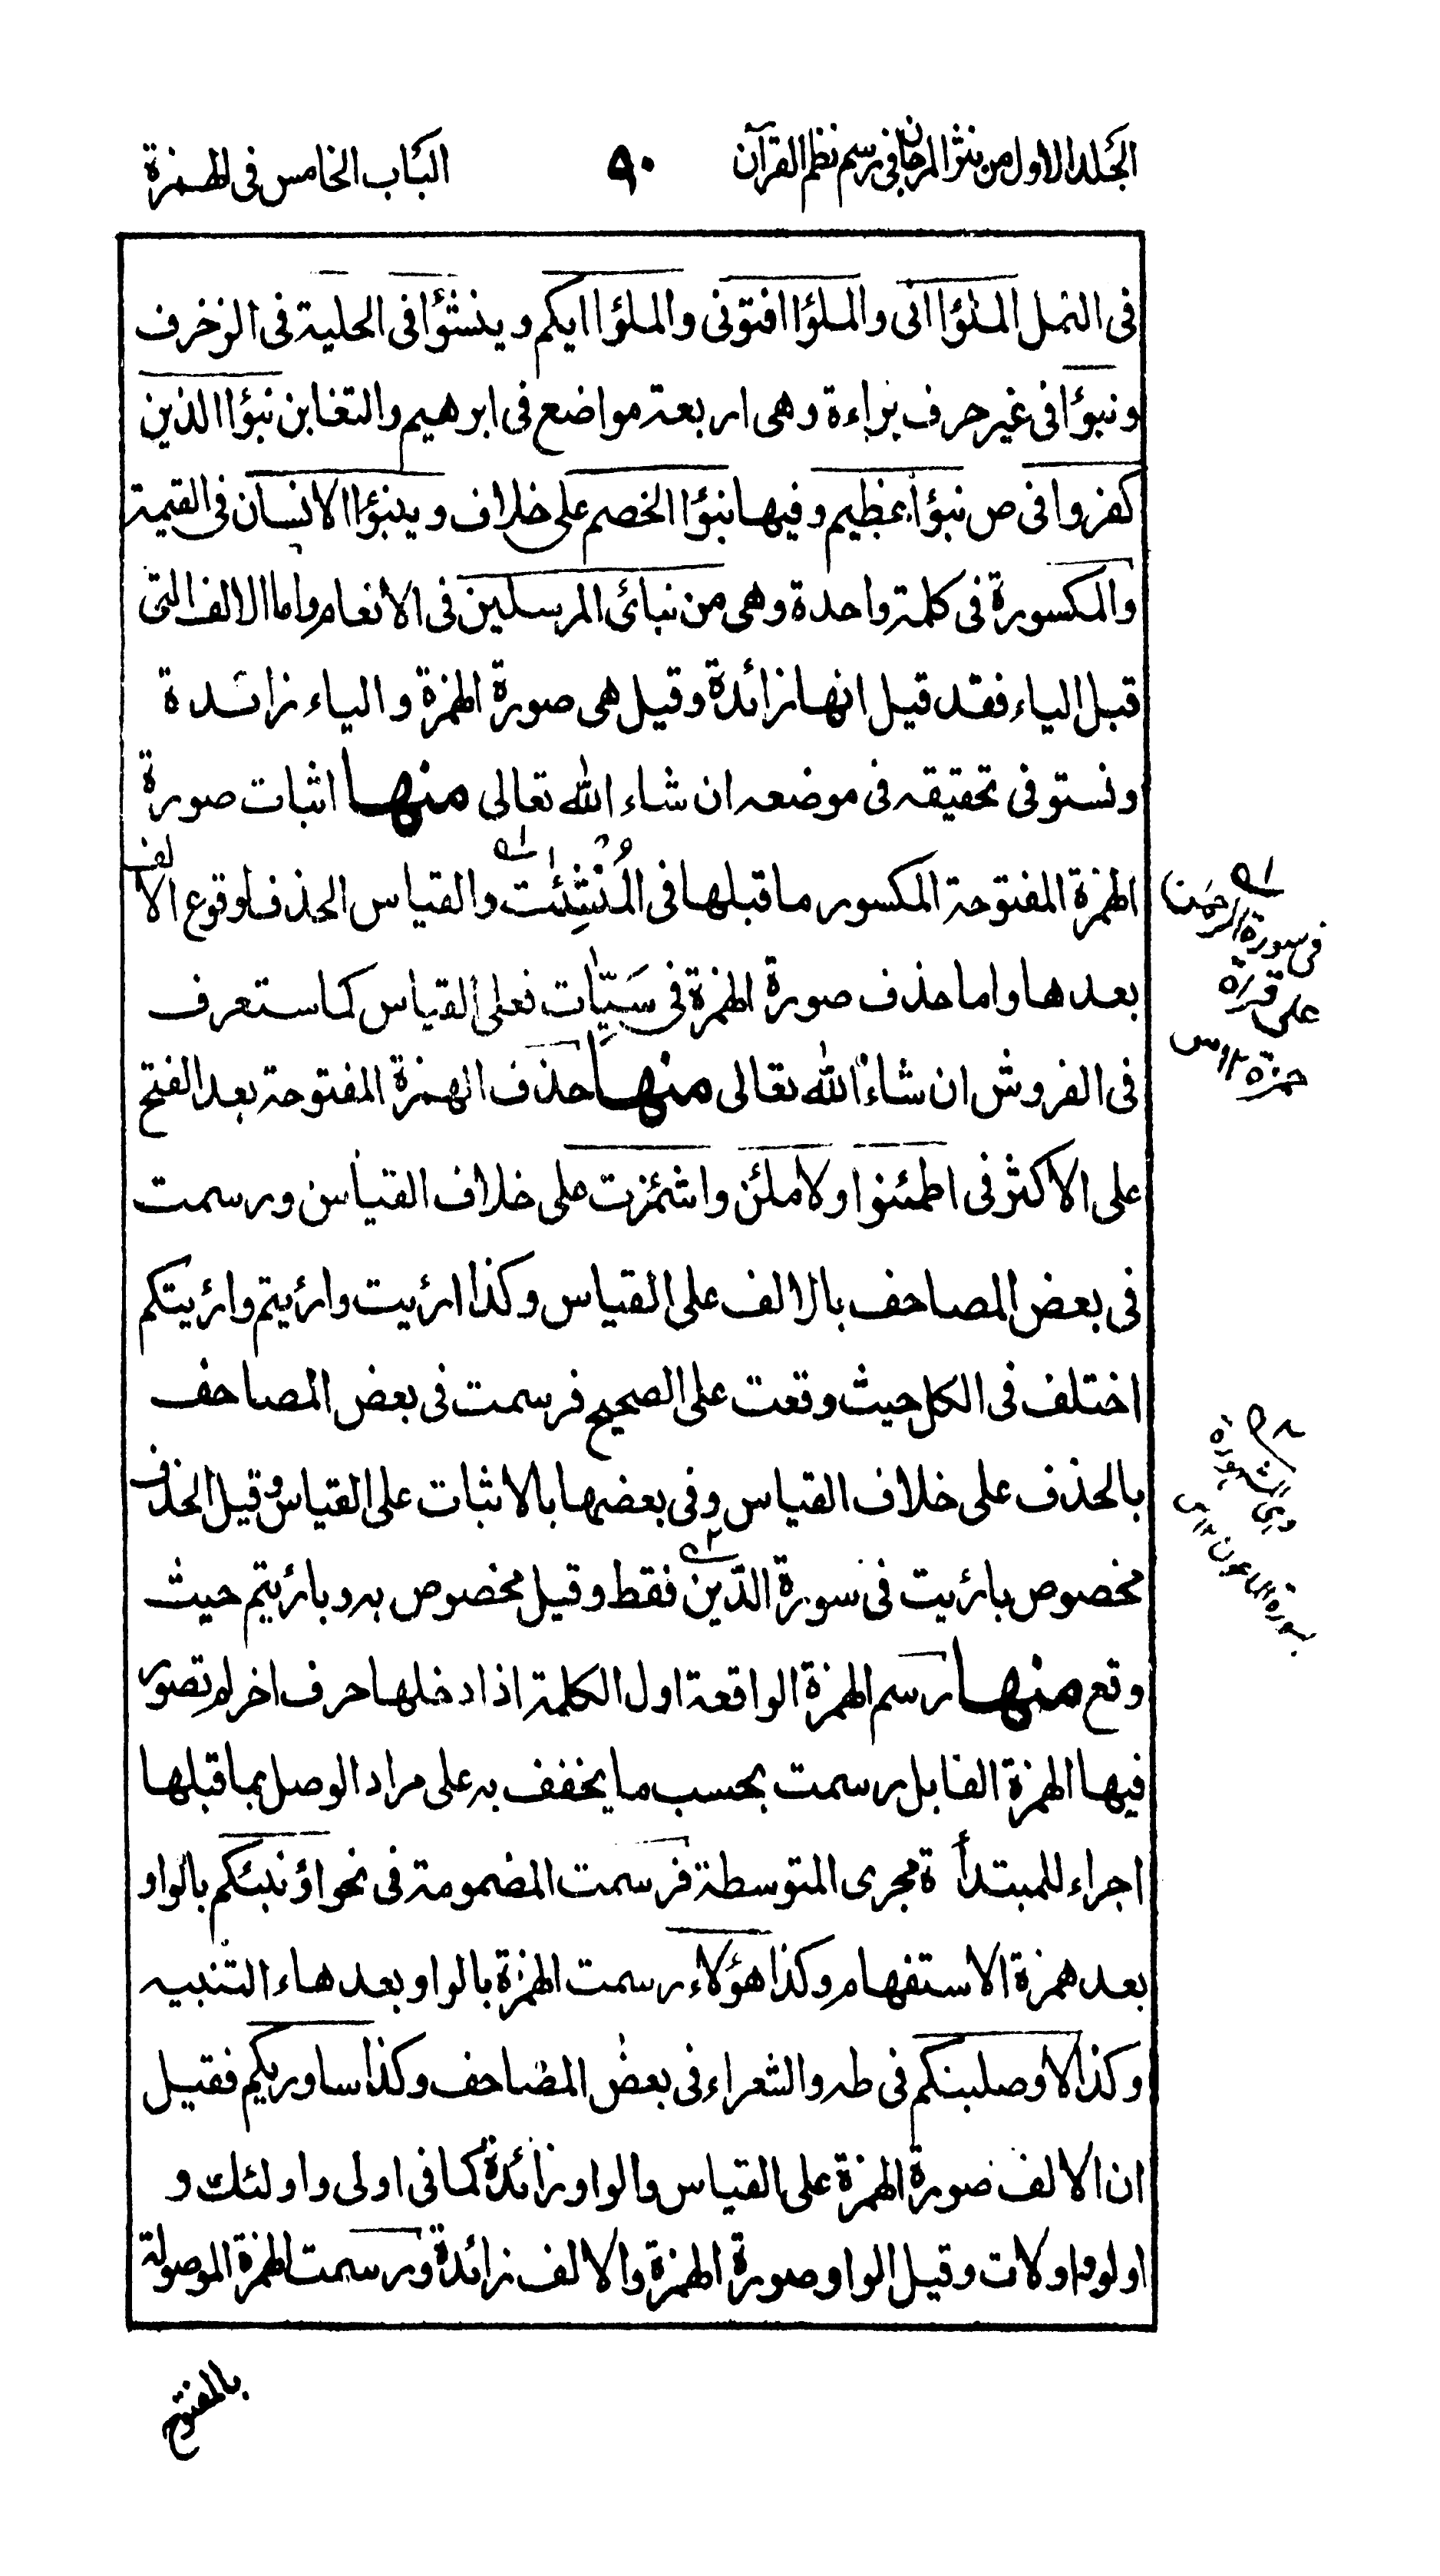 المجلد الاول من نثر المرجان فى رسم نظم القرآن
٩٠
الباب الخامس فى الهمزة
فى النمل الملؤا انى والملؤا افتونى والملؤا ايكم وينشؤا فى الحلية فى الزخرف
ونبؤا فى غير حرف براءة وهى اربعة مواضع فى ابرهيم والتغابن نبؤا الذين
كفروا فى ص نبؤا عظيم وفيها نبؤا الخصم على خلاف وينبؤا الانسان فى القيمة
والمكسورة فى كلمة واحدة وهى من نبائ المرسلين فى الانعام واما الالف التى
قبل الياء فقد قيل انها زائدة وقيل هى صورة الهمزة والياء زائدة
ونستوفى تحقيقه فى موضعه ان شاء الله تعالى منها اثبات صورة
الهمزة المفتوحة المكسور ما قبلها فى الْمُنْشِئٰت والقياس الحذف لوقوع الالف
بعدها واما حذف صورة الهمزة فى سَيِّاٰت فعلى القياس كما ستعرف
فى الفروش ان شاء الله تعالى منها حذف الهمزة المفتوحة بعد الفتح
على الاكثر فى اطمئنوا ولاملئن واشمئزت على خلاف القياس ورسمت
فى بعض المصاحف بالالف على القياس وكذا ارئيت وارئيتم وارئيتكم
اختلف فى الكل حيث وقعت على الصحيح فرسمت فى بعض المصاحف
بالحذف على خلاف القياس وفى بعضها بالاثبات على القياس وقيل الحذف
مخصوص بارئيت فى سورة الدّين فقط وقيل مخصوص به وبارئيتم حيث
وقع منها رسم الهمزة الواقعة اول الكلمة اذا دخلها حرف اخر لم تصور
فيها الهمزة الفا بل رسمت بحسب ما يخفف به على مراد الوصل بما قبلها
اجراء للمبتدأة مجرى المتوسطة فرسمت المضمومة فى نحو اؤنبئكم بالواو
بعد همزة الاستفهام وكذا هؤلاء رسمت الهمزة بالواو بعد هاء التنبيه
وكذا لاوصلبنكم فى طه والشعراء فى بعض المصاحف وكذا ساوريكم فقيل
ان الالف صورة الهمزة على القياس والواو زائدة كما فى اولى واولئك و
اولو واولات وقيل الواو صورة الهمزة والالف زائدة ورسمت الهمزة الموصولة
بالمفتوح
فى سورة الرحمن
على قراءة
حمزة ١٢
سورة الماعون ١٢